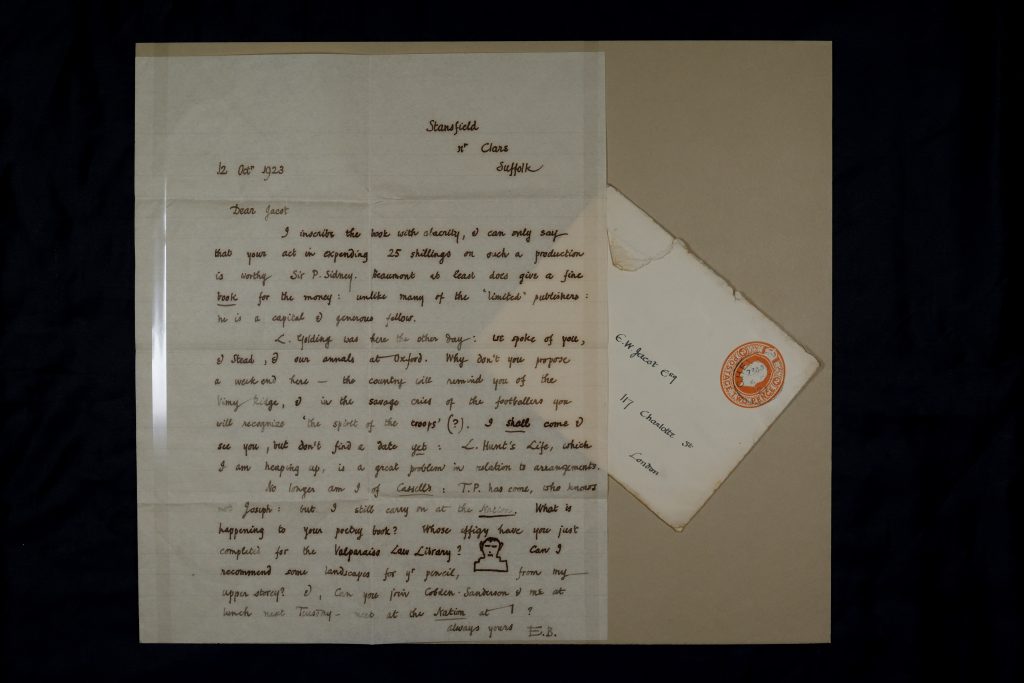 Stansfield
nr Clare
Suffolk
12 Octr 1923
Dear Jacot
I inscribe the book with alacrity, & can only say
that your act in expending 25 shillings on such a production
is worthy Sir P. Sidney. Beaumont at least does give a fine
book for the money: unlike many of the "limited" publishers:
he is a capital & generous fellow.
L. Golding was here the other day: we spoke of you,
& Stead, & our annals at Oxford. Why don't you propose
a week end here — the country will remind you of the
Vimy Ridge, & in the savage cries of the footballers you
will recognize 'the spirit of the troops' (?). I shall come &
see you, but don't find a date yet: L. Hunt's Life, which
I am heaping up, is a great problem in relation to arrangements.
No longer am I of Cassell's: T.P. has come, who knows
not Joseph: but I still carry on at the Nation. What is
happening to your poetry book? Whose effigy have you just
completed for the Valparaiso Law Library? Can I
recommend some landscapes for yr pencil, from my
upper storey? &, Can you join Cobden-Sanderson & me at
lunch next Tuesday — meet at the Nation at 1 ?
always yours E.B.
E. W. Jacot Esq
117 Charlotte St.
London